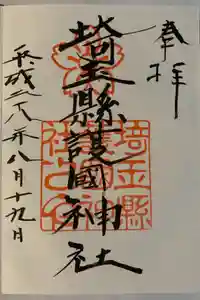 奉拝
埼玉縣護國神社
平成二八年八月十九日
埼玉縣
護國神
社之印